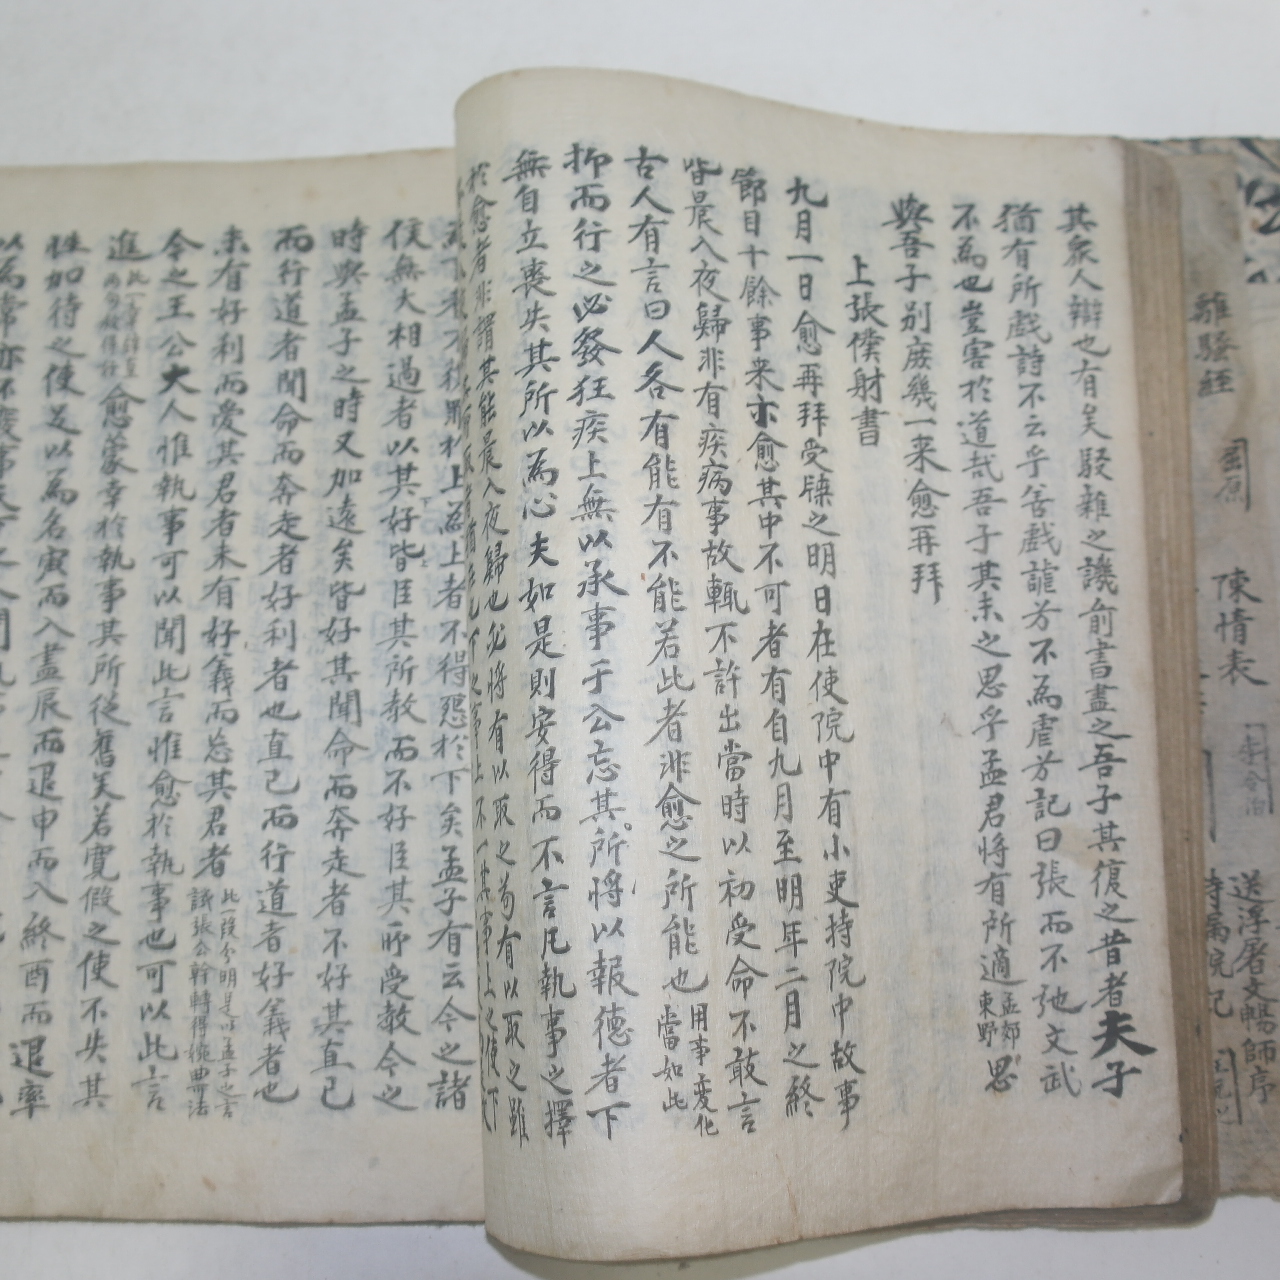 離騷經 屈原 陳情表 李令伯 送浮屠文暢師序
其衆人辯也有矣駁雜之譏前書盡之吾子其復之昔者夫子
猶有所戲詩不云乎善戲謔兮不為虐兮記曰張而不弛文武
不為也豈害於道哉吾子其未之思乎孟君將有所適孟郊東野思
與吾子别庶幾一来愈再拜
上張僕射書
九月一日愈再拜受牒之明日在使院中有小吏持院中故事
節目十餘事来示愈其中不可者有自九月至明年二月之終
皆晨入夜歸非有疾病事故輒不許出當時以初受命不敢言
古人有言曰人各有能有不能若此者非愈之所能也用事変化當如此
抑而行之必發狂疾上無以承事于公忘其所將以報德者下
無自立喪失其所以為心夫如是則安得而不言凡執事之擇
於愈者非謂其能晨入夜歸也必將有以取之苟有以取之雖
上為上者不得惡於下矣孟子有云今之諸
侯無大相過者以其好皆臣其所教而不好臣其所受教今之
時與孟子之時又加遠矣皆好其聞命而奔走者不好其直己
而行道者聞命而奔走者好利者也直己而行道者好義者也
未有好利而愛其君者未有好義而忘其君者此一段分明是以孟子之言譏張公幹轉得婉曲可法
今之王公大人惟執事可以聞此言惟愈於執事也可以此言
進愈蒙幸於執事其所從舊矣若寬假之使不失其
性加待之使足以為名寅而入盡辰而退申而入終酉而退率
以為常亦不廢事天下之人聞